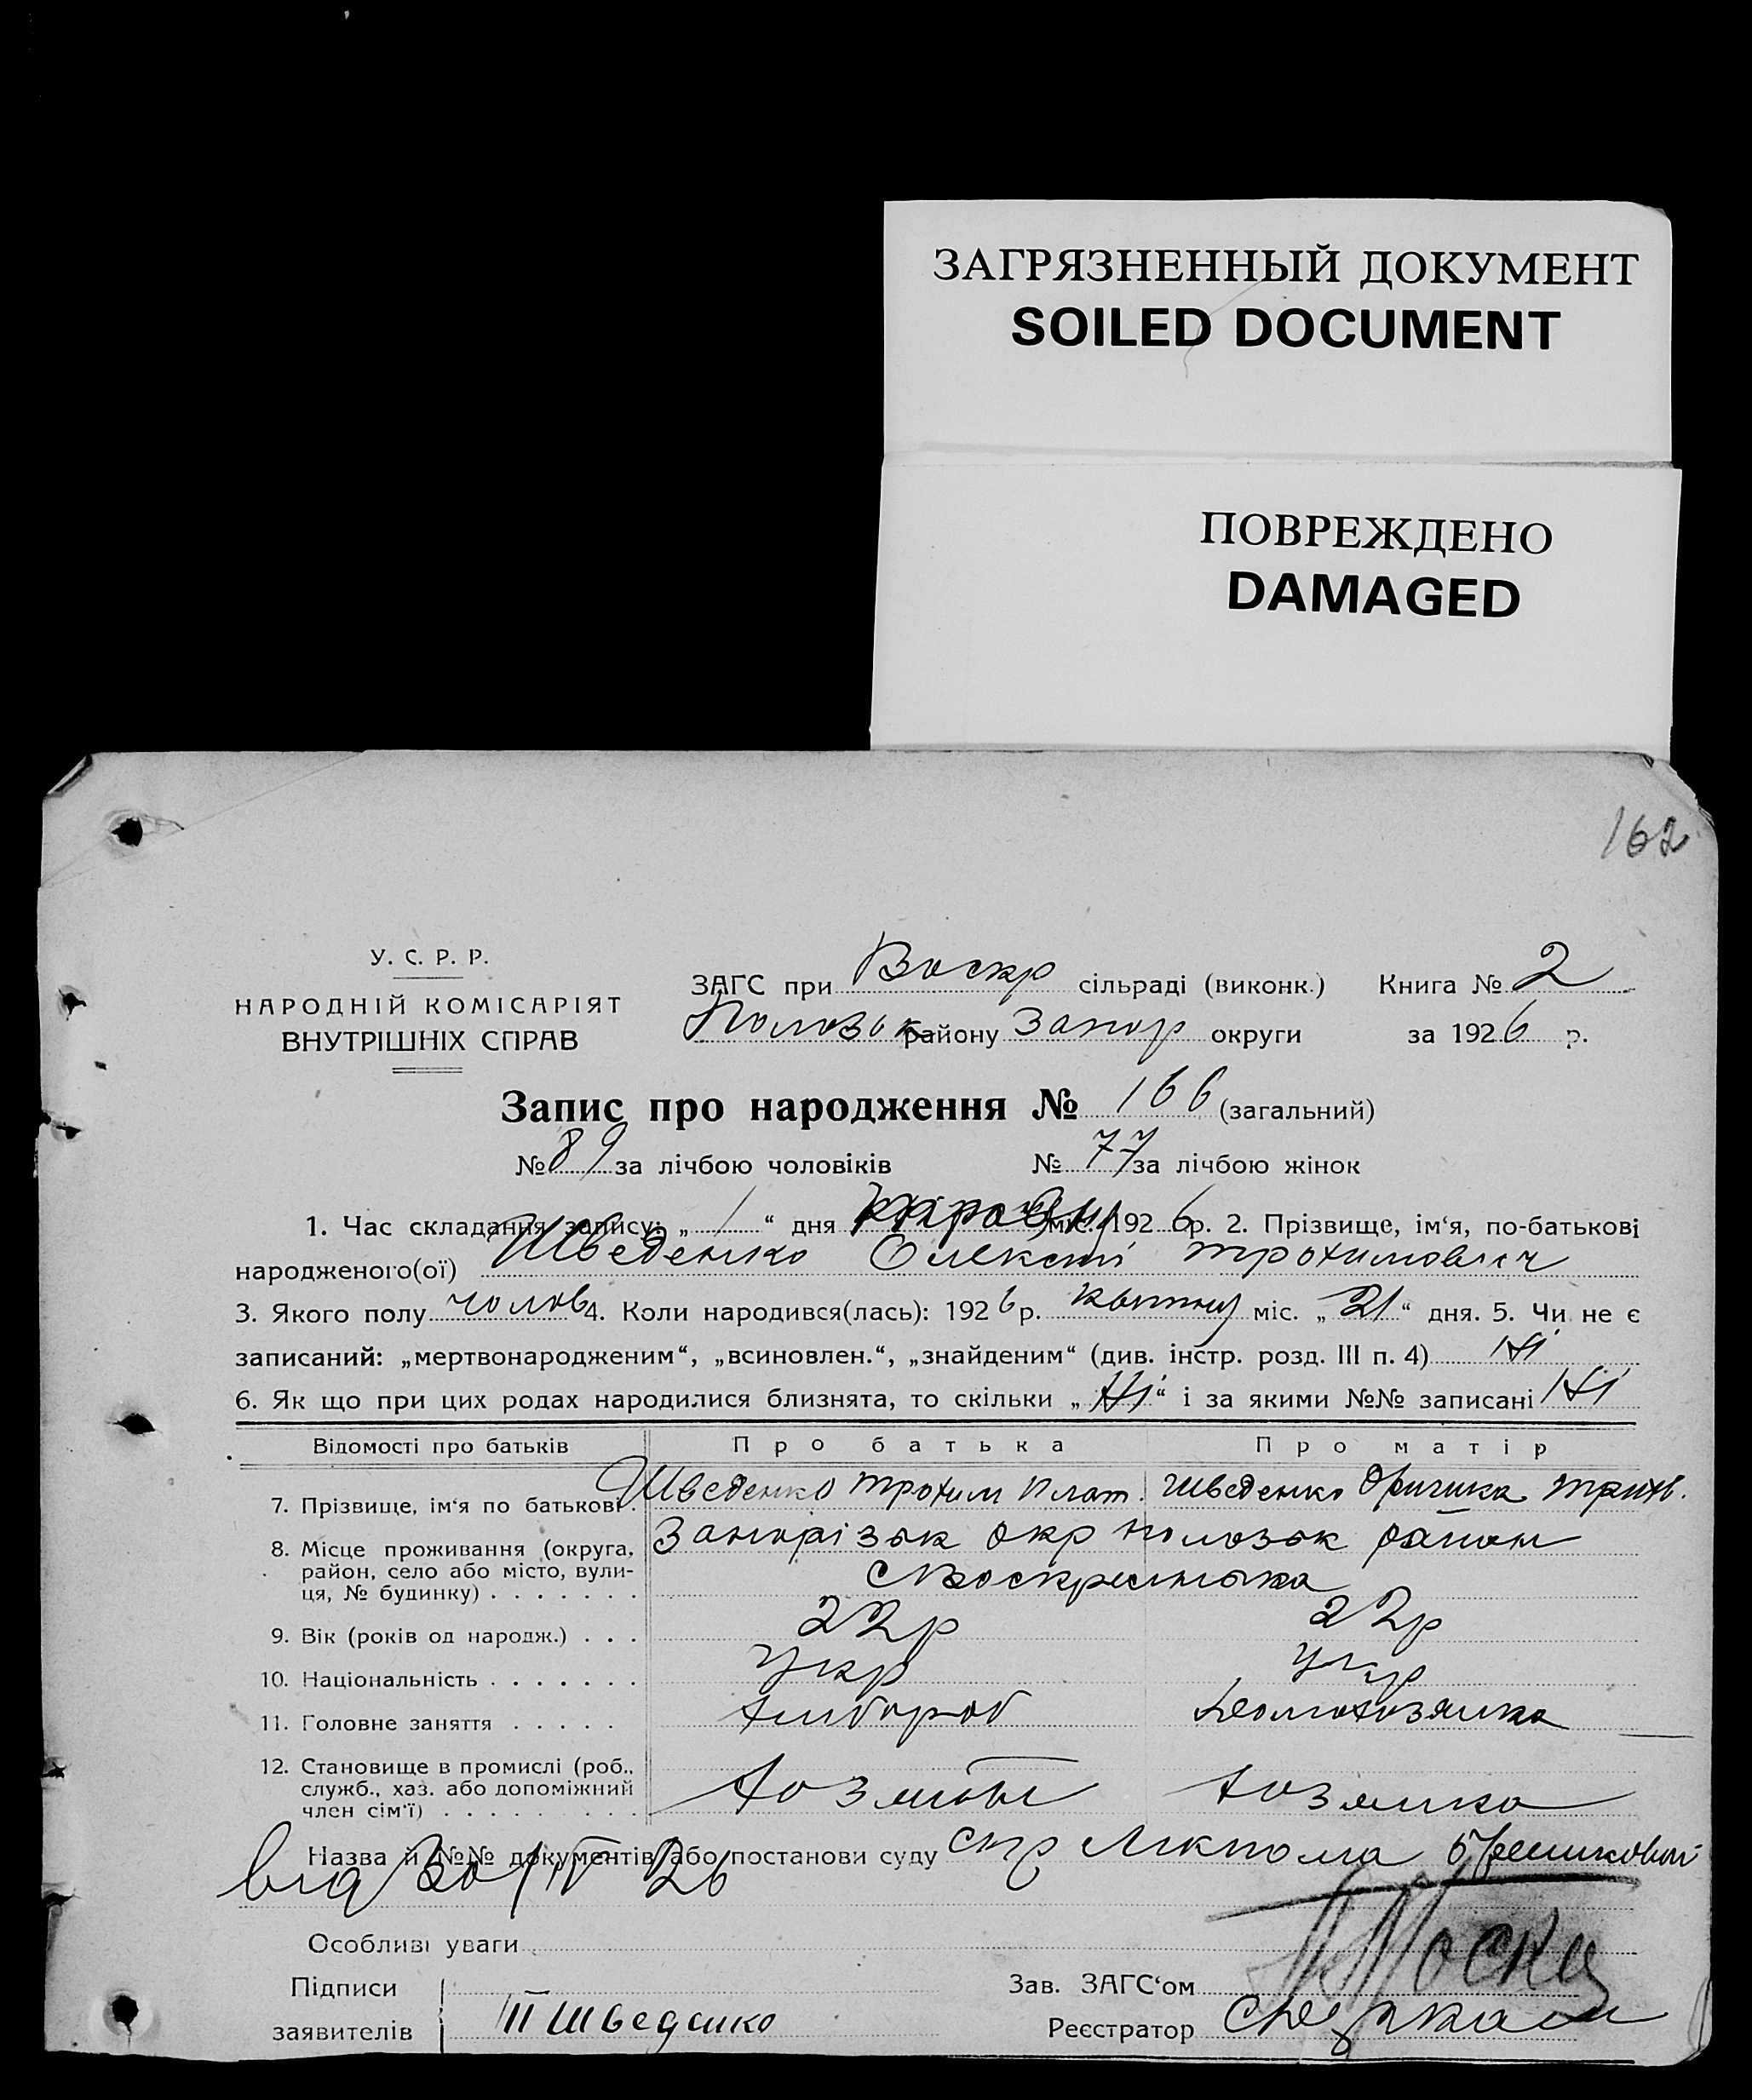 ЗАГРЯЗНЕННЫЙ ДОКУМЕНТ
SOILED DOCUMENT
ПОВРЕЖДЕНО
DAMAGED
162
У. С. Р. Р.
НАРОДНІЙ КОМІСАРІЯТ
ВНУТРІШНІХ СПРАВ
ЗАГС при Воскр сільраді (виконк.) Книга № 2
Полозьк району Запор округи за 1926 р.
Запис про народження № 166 (загальний)
№ 89 за лічбою чоловіків № 77 за лічбою жінок
1. Час складання запису: „ 1 “ дня міс. 1926 р. 2. Прізвище, ім‘я, по-батькові
народженого(ої) Шведенко Олексій Трохимович
3. Якого полу чолов 4. Коли народився(лась): 1926 р. квітня міс. „ 21 “ дня. 5. Чи не є
записаний: „мертвонародженим“, „всиновлен.“, „знайденим“ (див. інстр. розд. III п. 4) Ні
6. Як що при цих родах народилися близнята, то скільки „ Ні “ і за якими №№ записані Ні
Відомості про батьків Про батька Про матір
7. Прізвище, ім‘я по батькові. Шведенко Трохим Плат. Шведенко
8. Місце проживання (округа, район, село або місто, вулиця, № будинку) Запорізьк окр Полозьк район
с Воскресенька
9. Вік (років од народж.) 22р 22р
10. Національність укр укр
11. Головне заняття хлібороб домохозяйка
12. Становище в промислі (роб., служб., хаз. або допоміжний член сім‘ї) хозяїн хозяйка
Назва й №№ документів або постанови суду
від 30/IV 26
Особливі уваги
Підписи
заявителів Шведенко
Зав. ЗАГС‘ом
Реєстратор